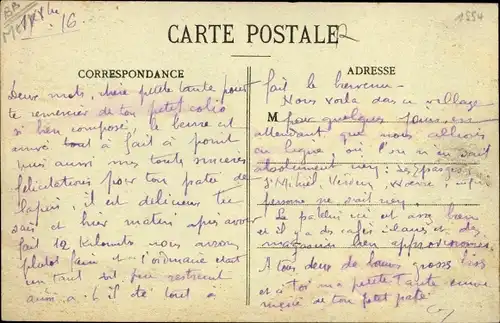 16
1554
CARTE POSTALE
CORRESPONDANCE
ADRESSE
M
Deux mots, chère petite tante pour
te remercier de ton petit colis
si bien composé. le beurre est
arrivé tout à fait à point
mais aussi mes toutes sincères
félicitations pour ton pâté de
lapin, il est délicieux tu
sais et hier matin après avoir
fait 12 kilomètres nous avions
plutôt faim et l'ordinaire étant
un tant soit peu restreint
aussi a-t-il été tout à
fait le bienvenu.
Nous voilà dans un village
pour quelques jours, en
attendant que nous allions
en ligne, où l'on n'en sait
absolument rien;
St Mihiel, Verdun,
personne ne sait rien.
Le patelin ici est assez bien
et il y a des cafés et des
magasins bien approvisionnés.
A tous deux de bons gross bises
et à toi ma petite tante
de ton petit pâté